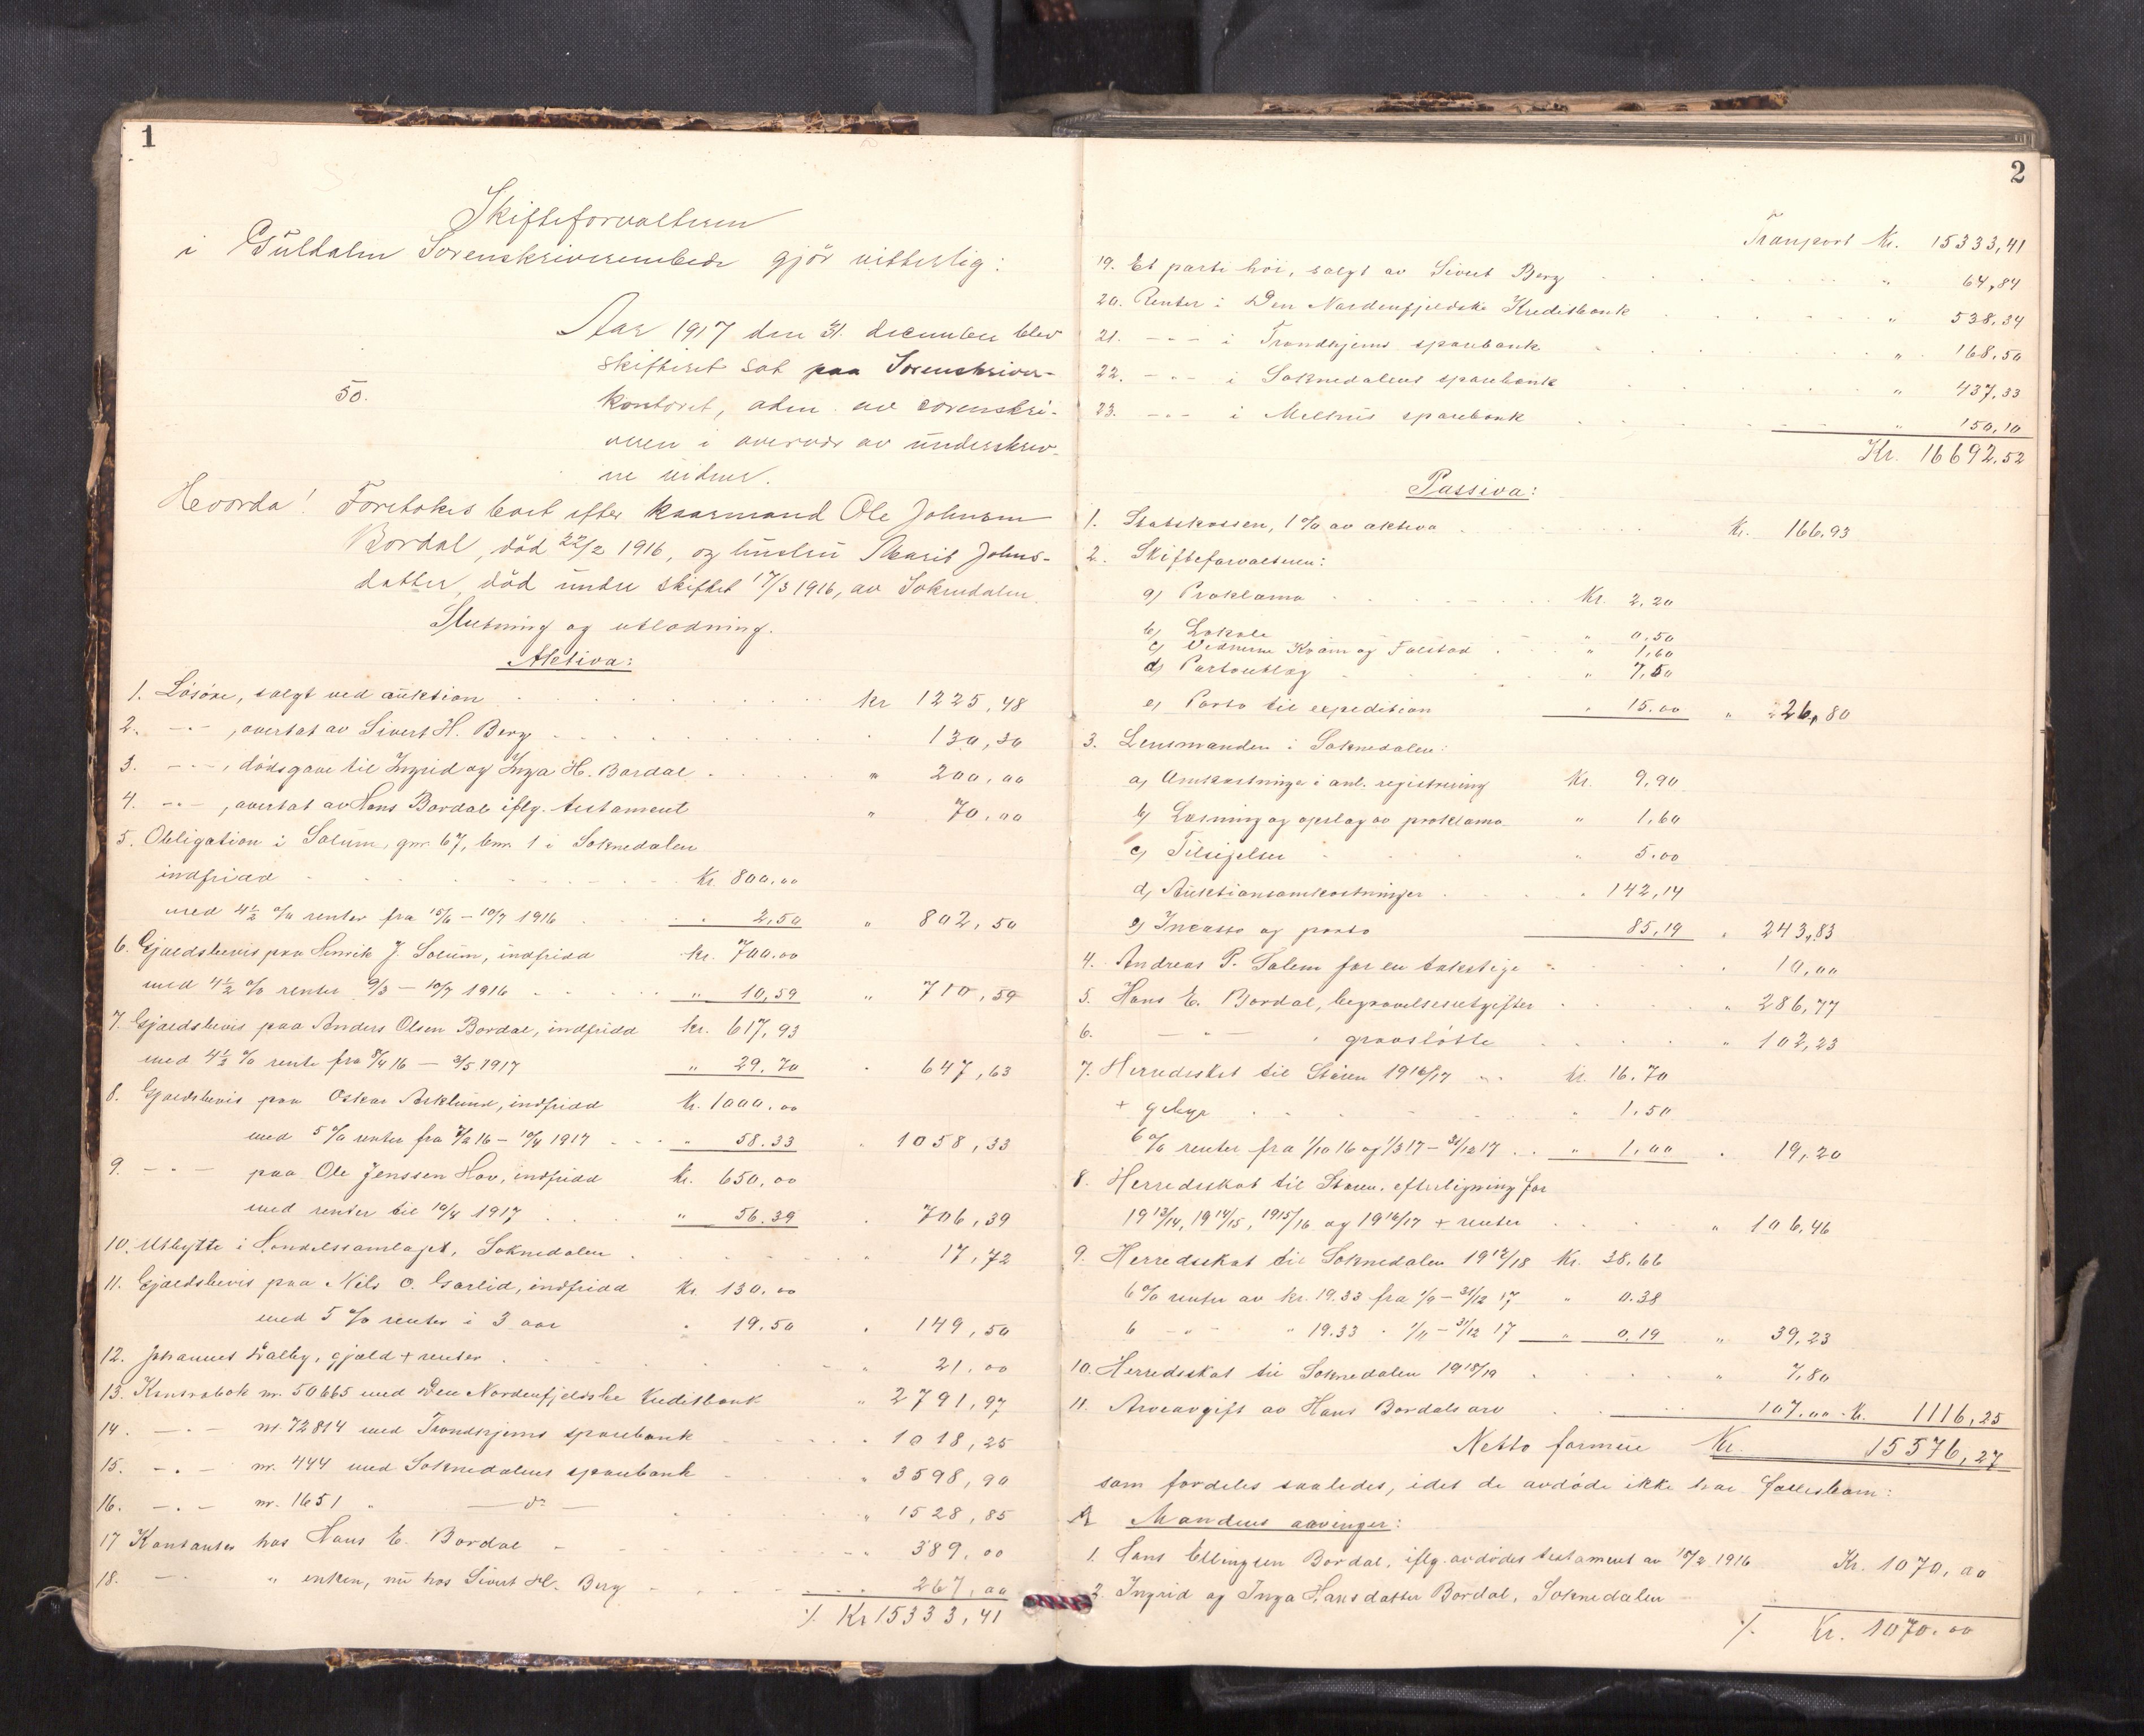 1
Skifteforvalteren
i Guldalen Sorenskriverembede gjör vitterlig:
Aar 1917 den 31. december blev
skifteret sat paa Sorenskriver-
50.
kontoret, adm. av sorenskri-
veren i overvær av underskrev-
ne vidner.
Hvorda! Foretokes boet efter kaarmand Ole Johnsen
Bordal, död 22/2 1916, og hustru Marit Johns-
datter, död under skiftet 17/3 1916, av Soknedalen.
Slutning og utlodning.
Aktiva:
1. Lösöre, solgt ved auktion kr 1225,48
2. -"- , overtat av Sivert H. Berg 130,30
3. -"- , dödsgave til Ingrid og Inga H. Bordal " 200,00
4. -"- , overtat av Hans Bordal iflg. testament " 70,00
5. Obligation i Solum, gnr. 67, bnr. 1 i Soknedalen
indfridd Kr. 800,00
med 4½ % renter fra 15/6 - 10/7 1916 " 2,50 " 802,50
6. Gjældsbevis paa Henrik J. Solum, indfridd kr. 700.00
med 4½ % renter 9/3 - 10/7 1916 " 10,59 " 710,59
7. Gjældsbevis paa Anders Olsen Bordal, indfridd kr. 617,93
med 4½ % rente fra 8/4 16 - 3/5 1917 " 29.70 " 647,63
8. Gjældsbevis paa Oskar Asklund, indfridd Kr. 1000.00
med 5 % renter fra 16 - 10/4 1917 " 58.33 " 1058,33
9. -"- paa Ole Jenssen Hov, indfridd kr. 650,00
med renter til 10/4 1917 " 56.39 " 706,39
10. Utbytte i Handelssamlaget, Soknedalen " 17,72
11. Gjældsbevis paa Nils O. Garlid, indfridd Kr. 130.00
med 5 % renter i 3 aar " 19.50 " 149,50
12. Johannes Dalby, gjæld + renter " 21.00
13. Kontrabok nr. 50665 med Den Nordenfjeldske Kreditbank " 2791,97
14. -"- nr. 72814 med Trondhjems sparebank " 1018,25
15. -"- nr. 444 med Soknedalens sparebank " 3598,90
16. -"- nr. 1651 " - do - " 1528,85
17 Kontanter hos Hans E. Bordal " 389,00
18. - " enken, nu hos Sivert H. Berg " 267,00
./. Kr 15333,41
2
Transport Kr. 15333,41
19. Et parti höi, solgt av Sivert Berg " 64,84
20. Renter i Den Nordenfjeldske Kreditbank " 538,34
21. -"- i Trondhjems sparebank " 168,50
22. -"- i Soknedalens sparebank " 437,33
23. -"- i Melhus sparebank " 150,10
Kr. 16692,52
Passiva:
1. Statskassen, 1 % av aktiva Kr. 166,93
2. Skifteforvalteren:
a) Proklama Kr. 2,20
b) Lokale " 0,50
c) Vidnerne Kvam og Folstad " 1,60
d) Portoutlæg " 7,50
e) Porto til expedition " 15.00 " 26,80
3. Lensmanden i Soknedalen:
a) Omkostninger i anl. registrering Kr. 9,90
b) Læsning og opslag av proklama " 1,60
c) Tilsigelser " 5.00
d) Auktionsomkostninger " 142,14
e) Incasso og porto 85,19 " 243,83
4. Andreas P. Solem for en takstige " 10,00
5. Hans E. Bordal, begravelsesutgifter " 286,77
6. - " - " gravstötte " 102,23
7. Herredsskat til Stören 1916/17 Kr. 16.70
+ gebyr " 1.50
6 % renter fra 1/10 16 og 1/3 17 - 31/12 17 " 1,00 " 19,20
8. Herredsskat til Stören, efterligning for
1913/14, 1914/15, 1915/16 og 1916/17 + renter " 106,46
9. Herredsskat til Soknedalen 1917/18 Kr. 38.66
6 % renter av kr. 19.33 fra 1/9 - 31/12 17 " 0.38
6 - " - " 19.33 " 1/11 - 31/12 17 " 0,19 " 39,23
10. Herredsskat til Soknedalen 1918/19 " 7,80
11. Arveavgift av Hans Bordals arv 107.00 Kr. 1116,25
Netto formue Kr. 15576,27
som fordeles saaledes, idet de avdöde ikke har fællesbarn:
A Mandens arvinger:
1. Hans Ellingsen Bordal, iflg. avdödes testament av 18/2 1916 Kr. 1070,00
2. Ingrid og Inga Hansdatter Bordal, Soknedalen
./. Kr. 1070.00